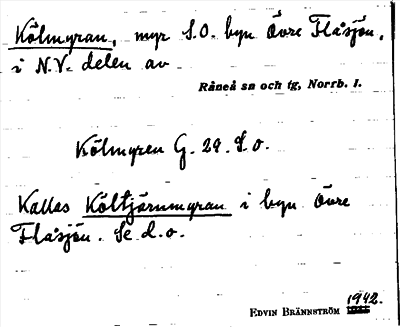 Kölmyran, myr S.O. byn Övre Flåsjön,
i N.V. delen av
Råneå sn och tg, Norrb. l.
Kölmyren G. 29. S.o.
Kallas Költjärnmyran i byn Övre
Flåsjön. Se d.o.
EDVIN BRÄNNSTRÖM 1942.